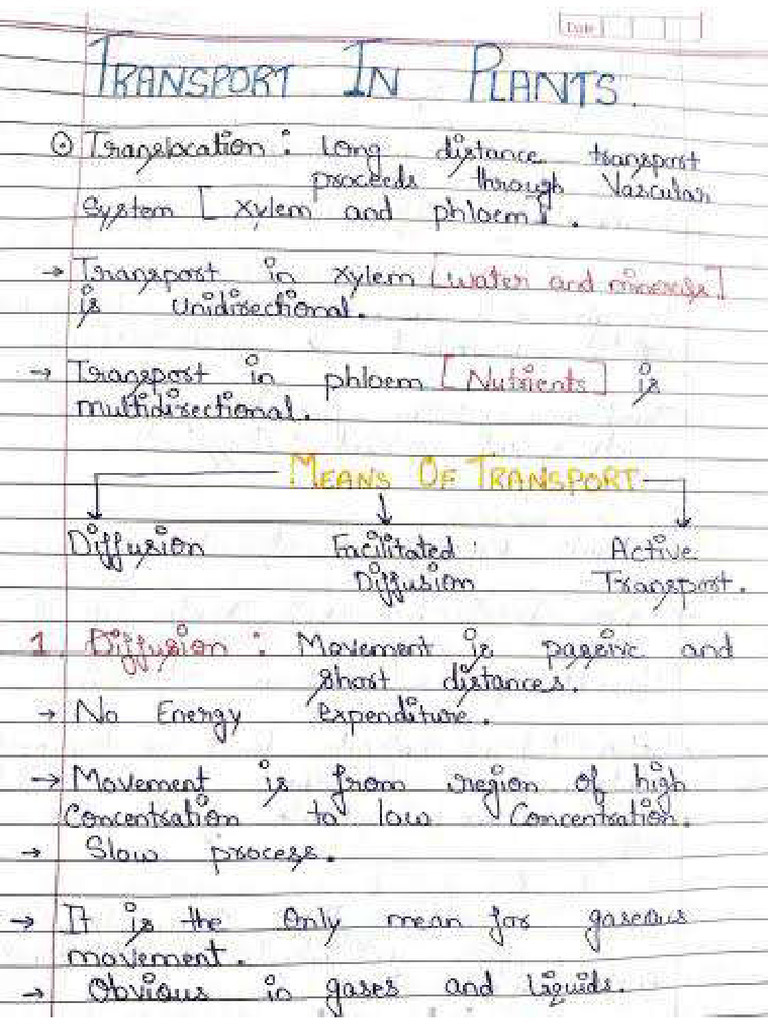 Date
TRANSPORT IN PLANTS.
Translocation : long distance transport
proceeds through Vascular
System [ xylem and phloem ] .
→ Transport in xylem [water and minerals]
is Unidirectional.
→ Transport in phloem [Nutrients] is
multidirectional.
MEANS OF TRANSPORT
Diffusion Facilitated Active
Diffusion Transport.
1. Diffusion : Movement is passive and
short distances.
→ No Energy expenditure.
→ Movement is from region of high
Concentration to low Concentration.
→ Slow process.
→ It is the Only mean for gaseous
movement.
→ Obvious in gases and liquids.